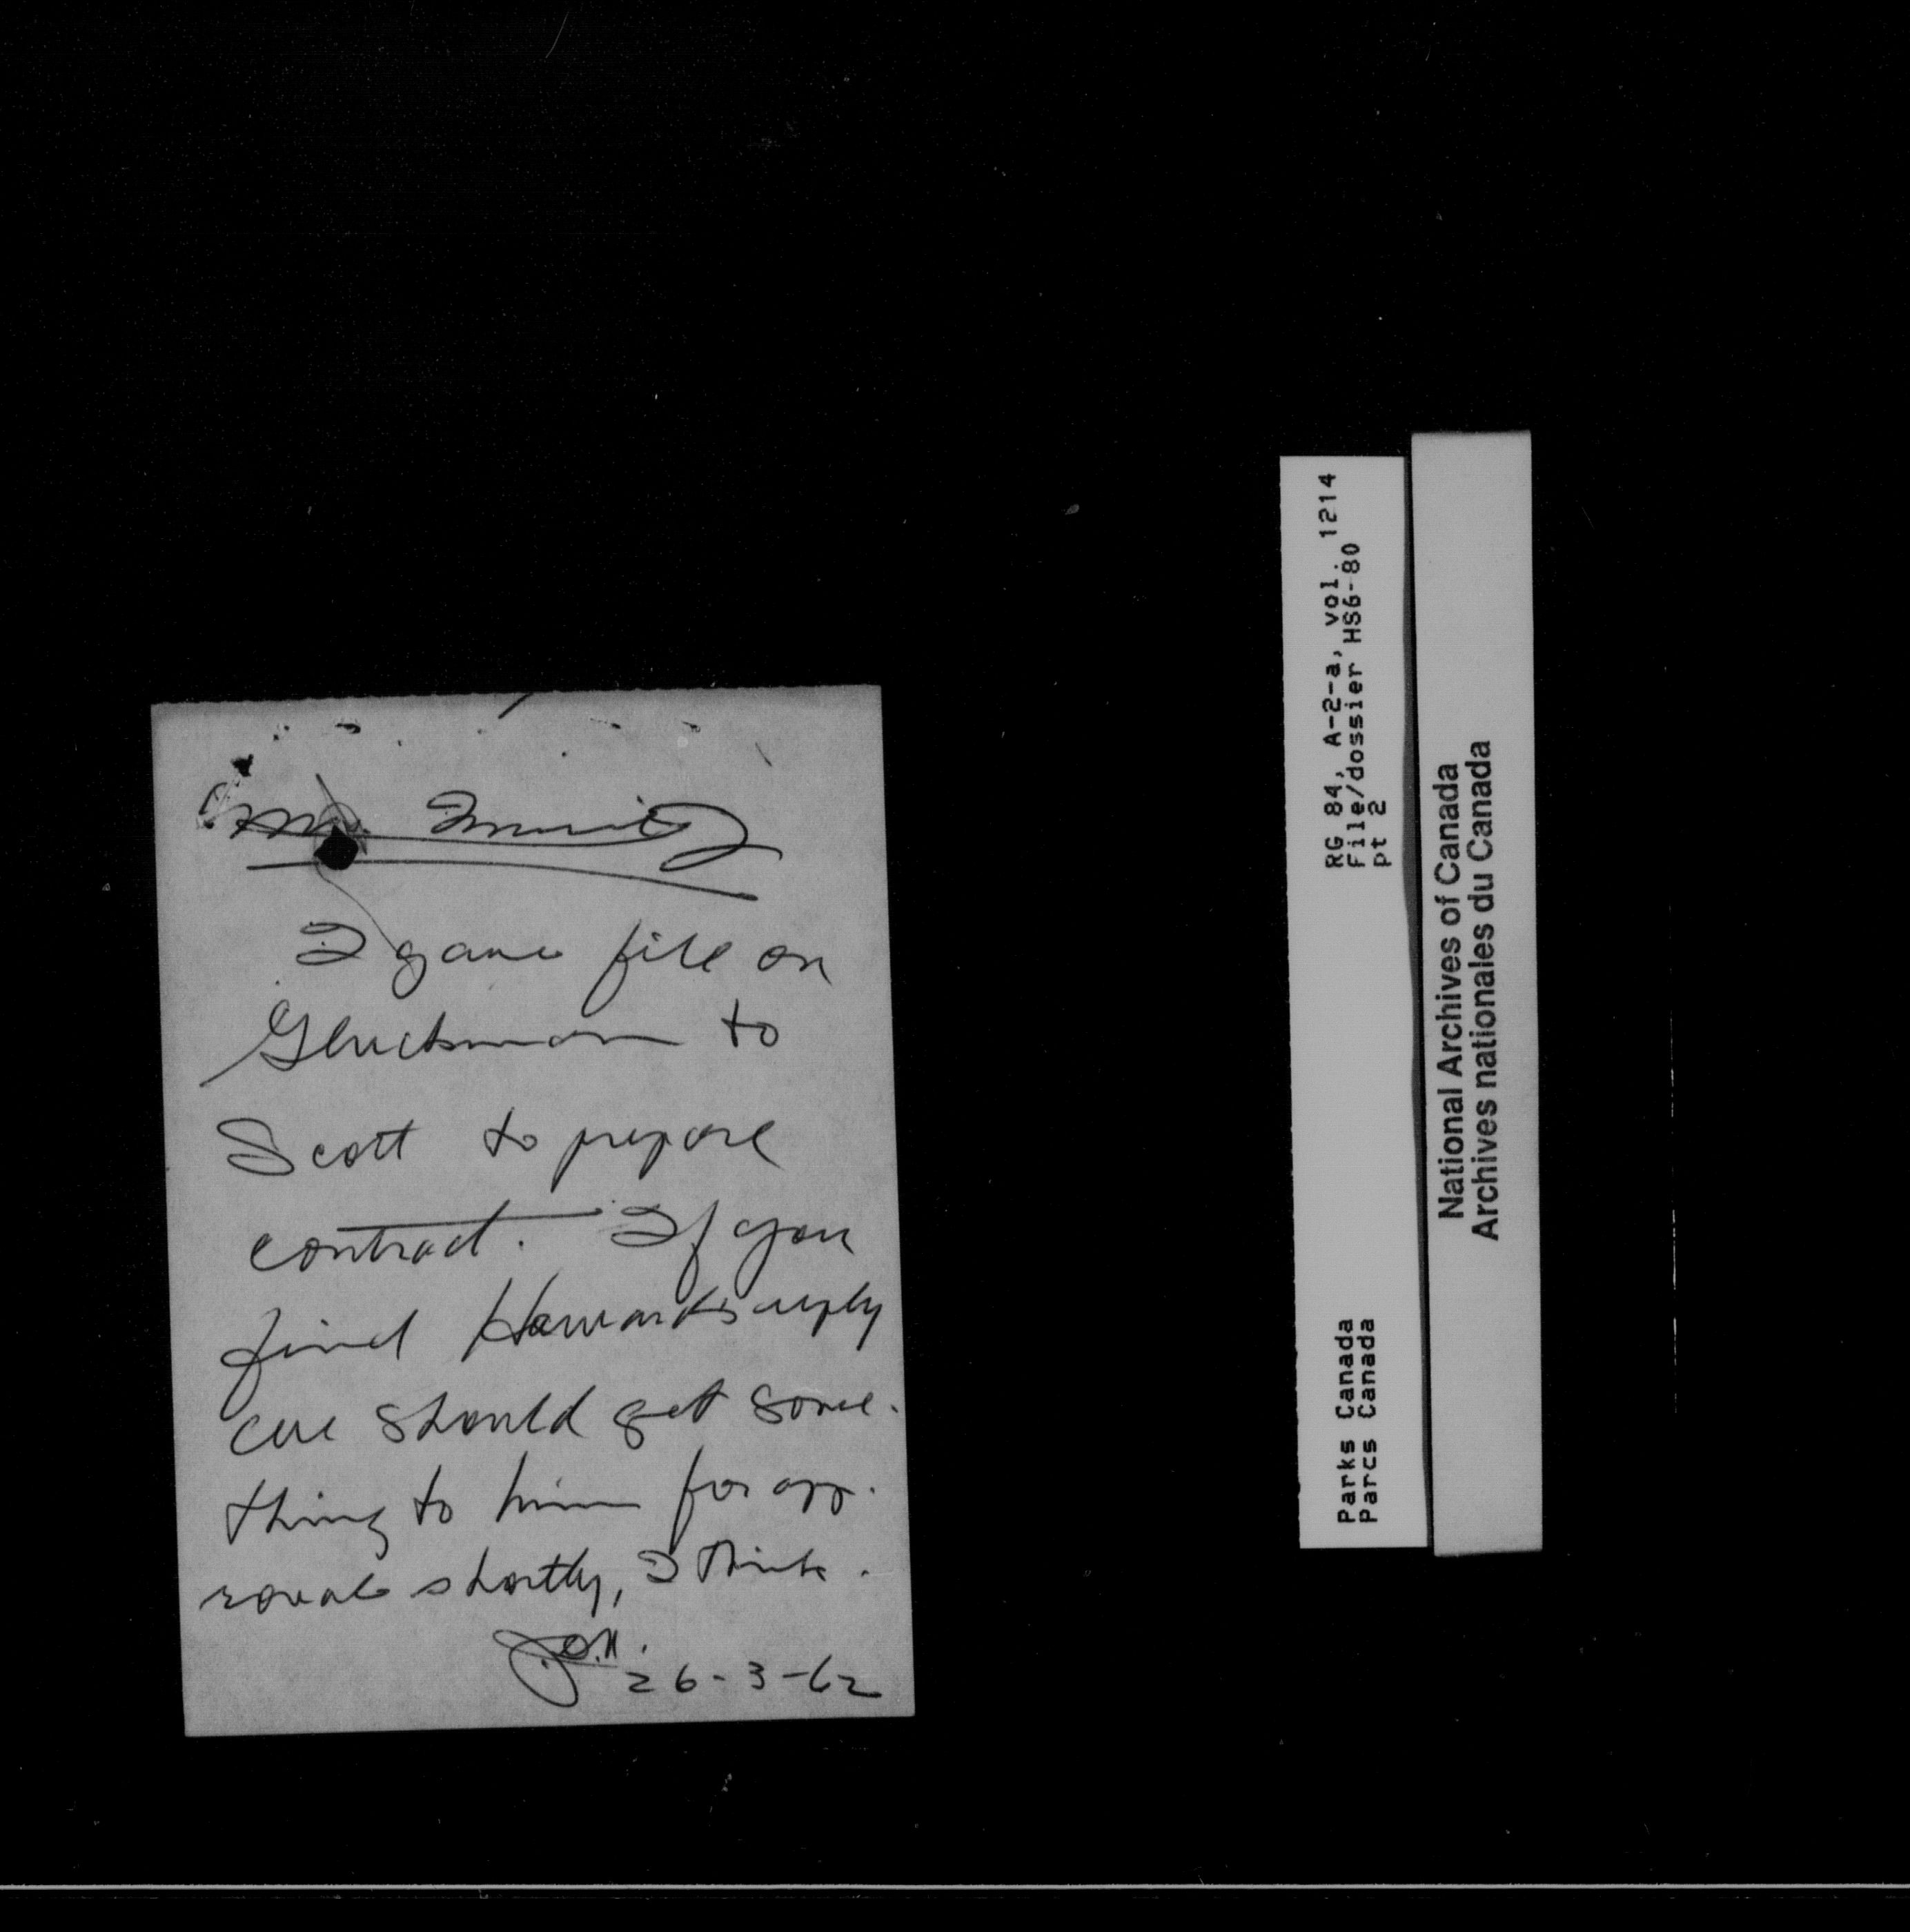 Mr.
I gave file on
Gluckman to
Scott to prepare
contract. If you
find Howard's reply
we should get some-
thing to him for app-
roval shortly, I think.
26-3-62
RG 84, A-2-a, vol. 1214
File/dossier HS6-80
pt 2
Parks Canada
Parcs Canada
National Archives of Canada
Archives nationales du Canada